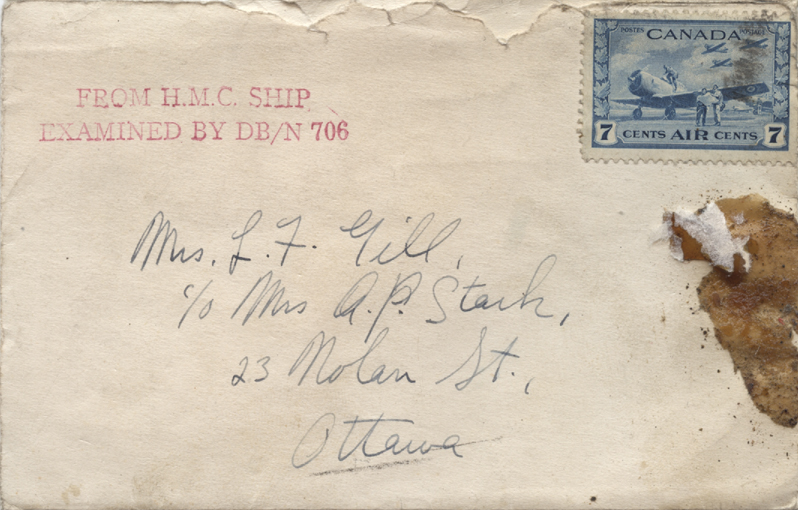 POSTES CANADA POSTAGE
7 CENTS AIR CENTS 7
FROM H.M.C. SHIP
EXAMINED BY DB/N 706
Mrs. L. F. Gill,
c/o Mrs A. P. Stark,
23 Nolan St.,
Ottawa